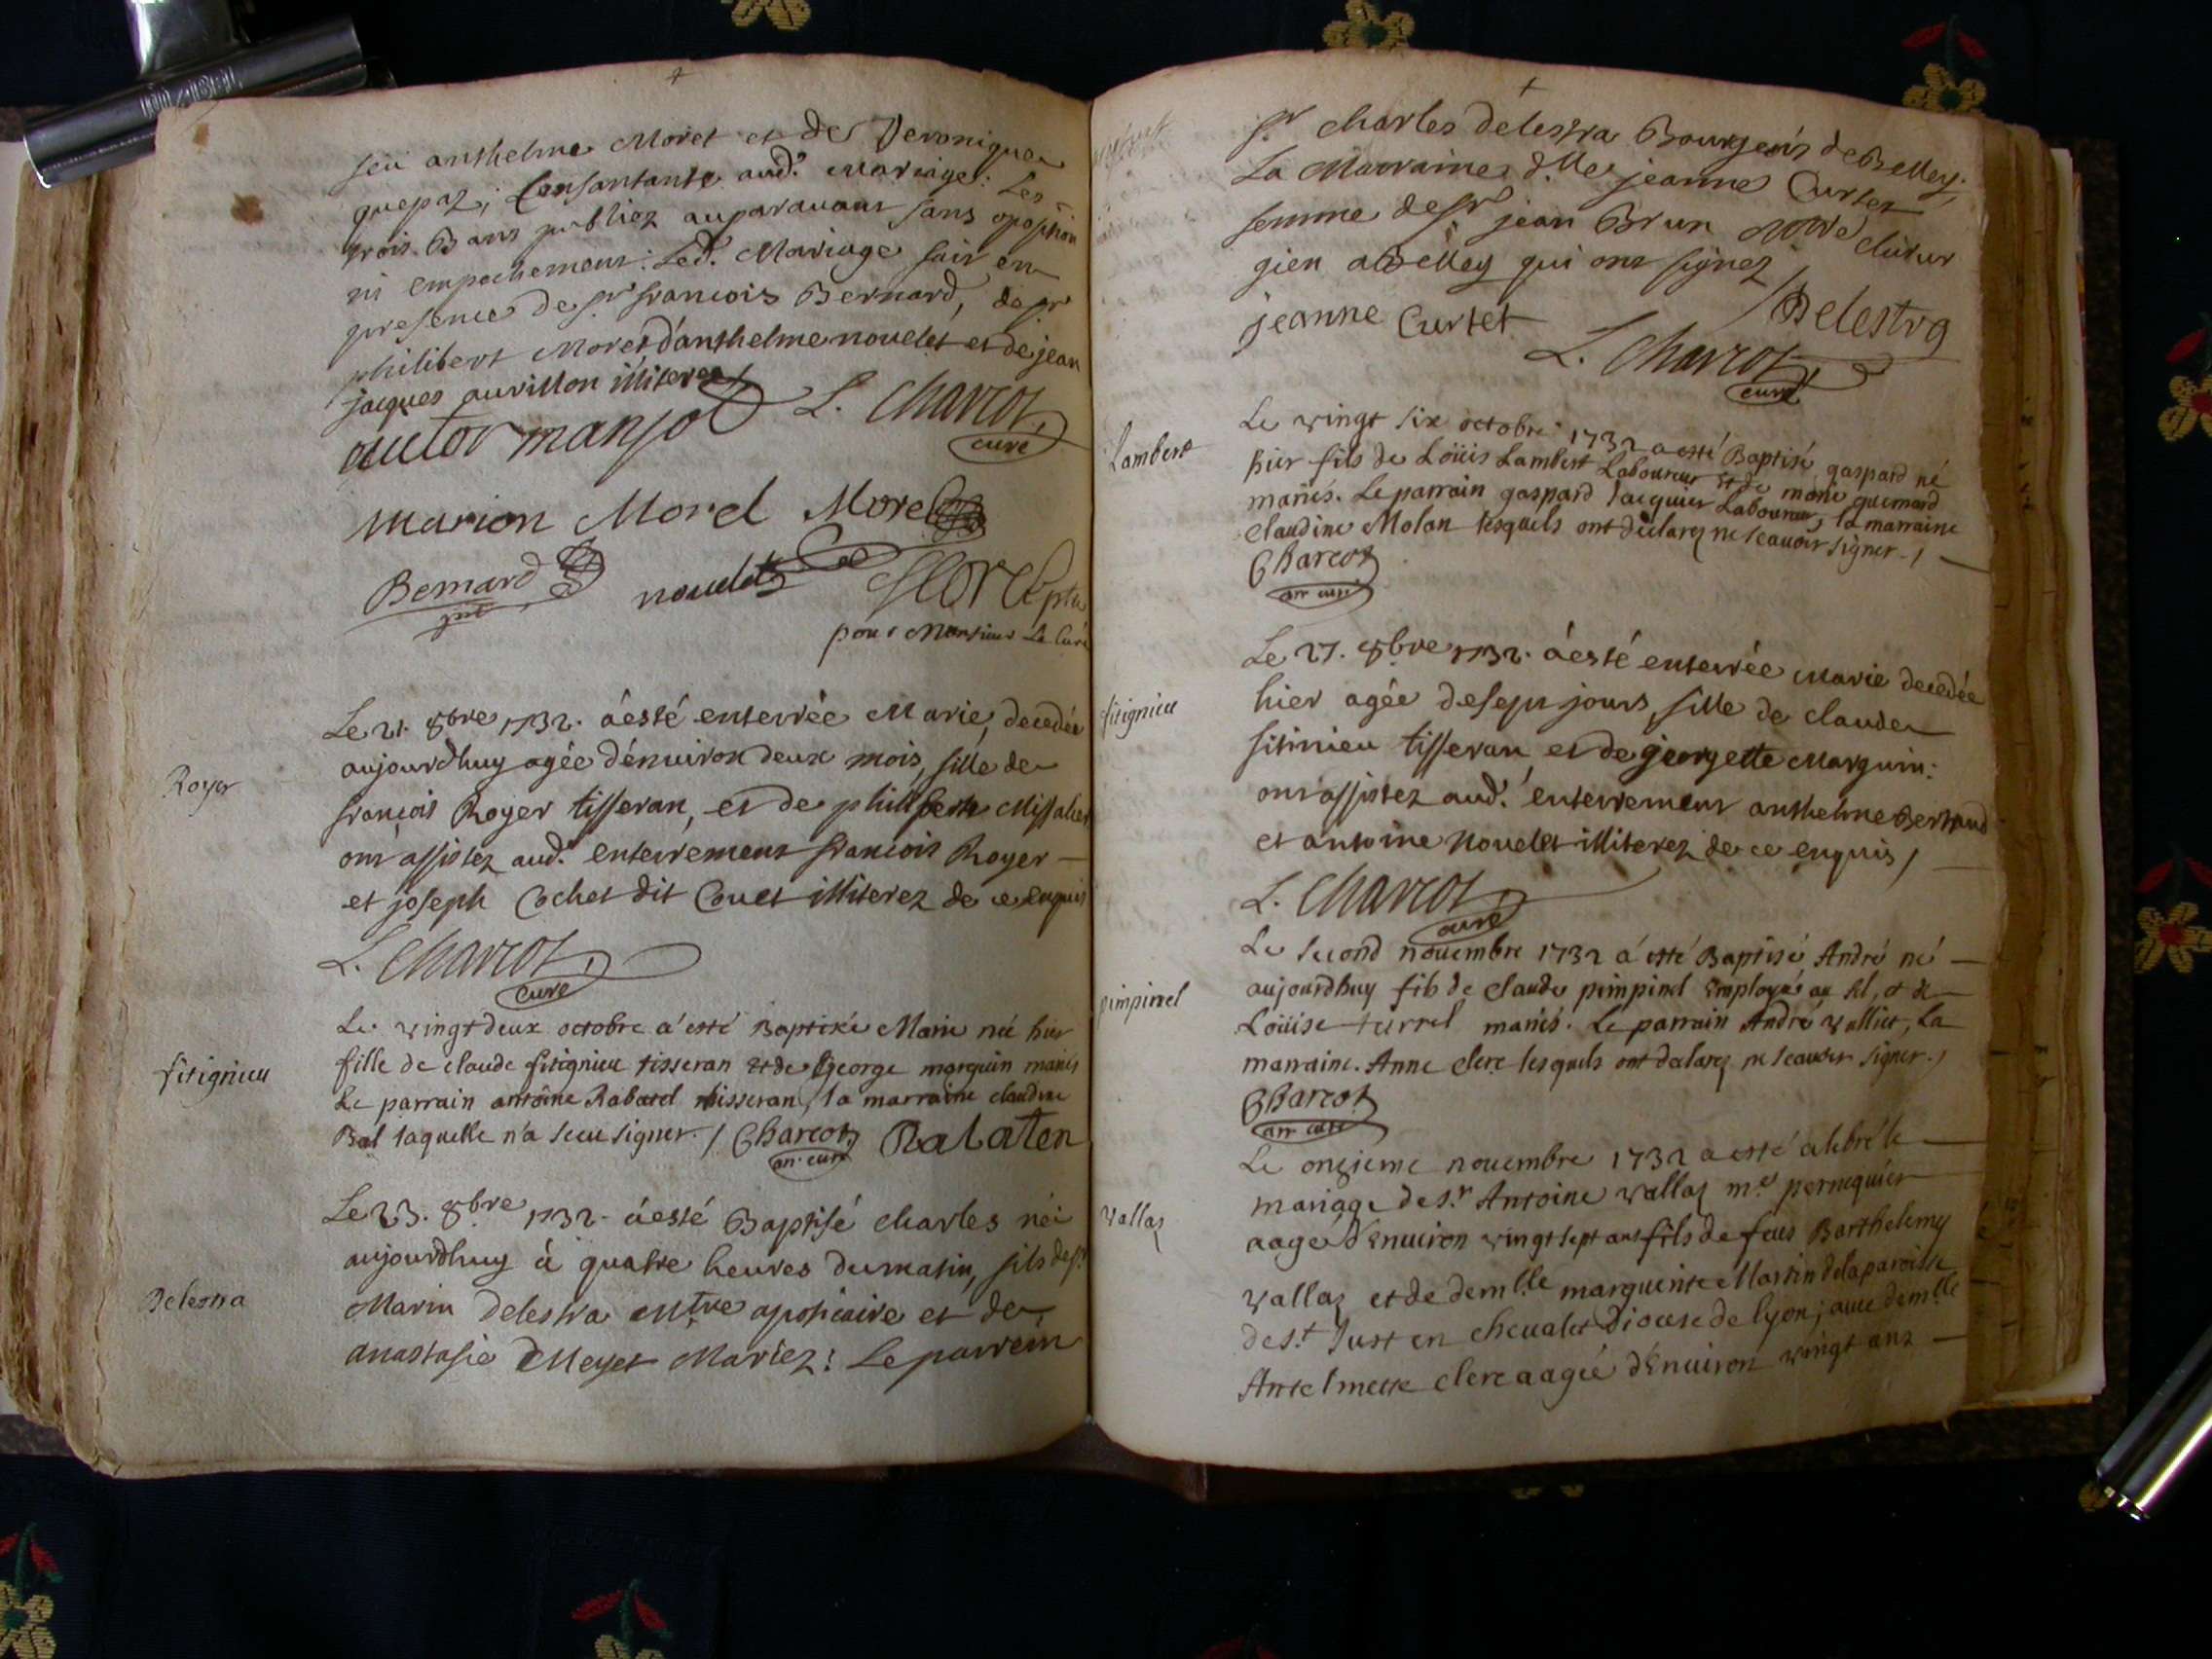 feu anthelme Moret et de Veronique
quepaz; Consantante aud.t Mariage: Les
trois Bans publiez auparauant sans oposition
ni empechement: Led.t Mariage fait en
presence de s.r francois Bernard, de s.r
philibert Moret d'anthelme nouelet et de jean
jacques auvillon illiterez
autor manjot L. Charcot
curé
marion Morel Morel
Bernard nouelet Morel ptre
pour Monsieur Le Curé
Le 21. 8bre 1732. a esté enterrée Marie, decedée
aujourdhuy agée d'enuiron deux mois, fille de
Royer
francois Royer tisseran, et de philiberte Missalier
ont assistez aud.t enterrement francois Royer
et joseph Cochet dit Couet illiterez de ce enquis
L. Charcot
curé
Le vingt deux octobre a esté Baptisée Marie née hier
fitignieu
fille de claude fitignieu tisseran et de George marguin mariés
Le parrain antoine Rabatel tisseran, la marraine claudine
Bal laquelle n'a sceu signer. / Charcot Rabaten
arr. curé
Le 23. 8bre 1732. a esté Baptisé charles né
aujourdhuy à quatre heures du matin, fils de s.r
Delestra
Marin Delestra Mtre apoticaire et de
anastasie Meyet Mariez: Le parrein
s.r Charles delestra Bourgeois de Belley;
La Marraine d.lle jeanne Curtet
femme de s.r jean Brun Mtre chirur
gien a Belley qui ont signez
jeanne Curtet Delestra
L. Charcot
curé
Le vingt six octobre 1732 a esté Baptisé gaspard né
Lambert
hier fils de Loüis Lambert Laboureur et de marie guemard
mariés. Le parrain gaspard Jacquier Laboureur, la marraine
Claudine Molan lesquels ont déclarez ne scauoir signer. /
Charcot
arr curé
Le 27. 8bre 1732. a esté enterrée Marie decedée
fitignieu
hier agée de sept jours, fille de claude
fitinieu tisseran et de georgette Marguin:
ont assistez aud.t enterrement anthelme Bertrand
et antoine Nouelet illiterez de ce enquis /
L. Charcot
curé
Le second nouembre 1732 a esté Baptisé André né
pimpinel
aujourdhuy fils de claude pimpinel Employé au sel, et de
Loüise turrel mariés. Le parrain André valliet, La
marraine. Anne clerc lesquels ont declarez ne scauoir signer. /
Charcot
arr curé
Le onzieme nouembre 1732 a esté celebré le
mariage de s.r Antoine vallaz m.e perruquier
vallaz
aagé d'enuiron vingt sept ans fils de feus Barthelemy
vallaz et de dem.lle marguerite Martin de la paroisse
de s.t Just en cheualet Diocese de lyon; auec dem.lle
Antelmette clerc aagée d'enuiron vingt ans